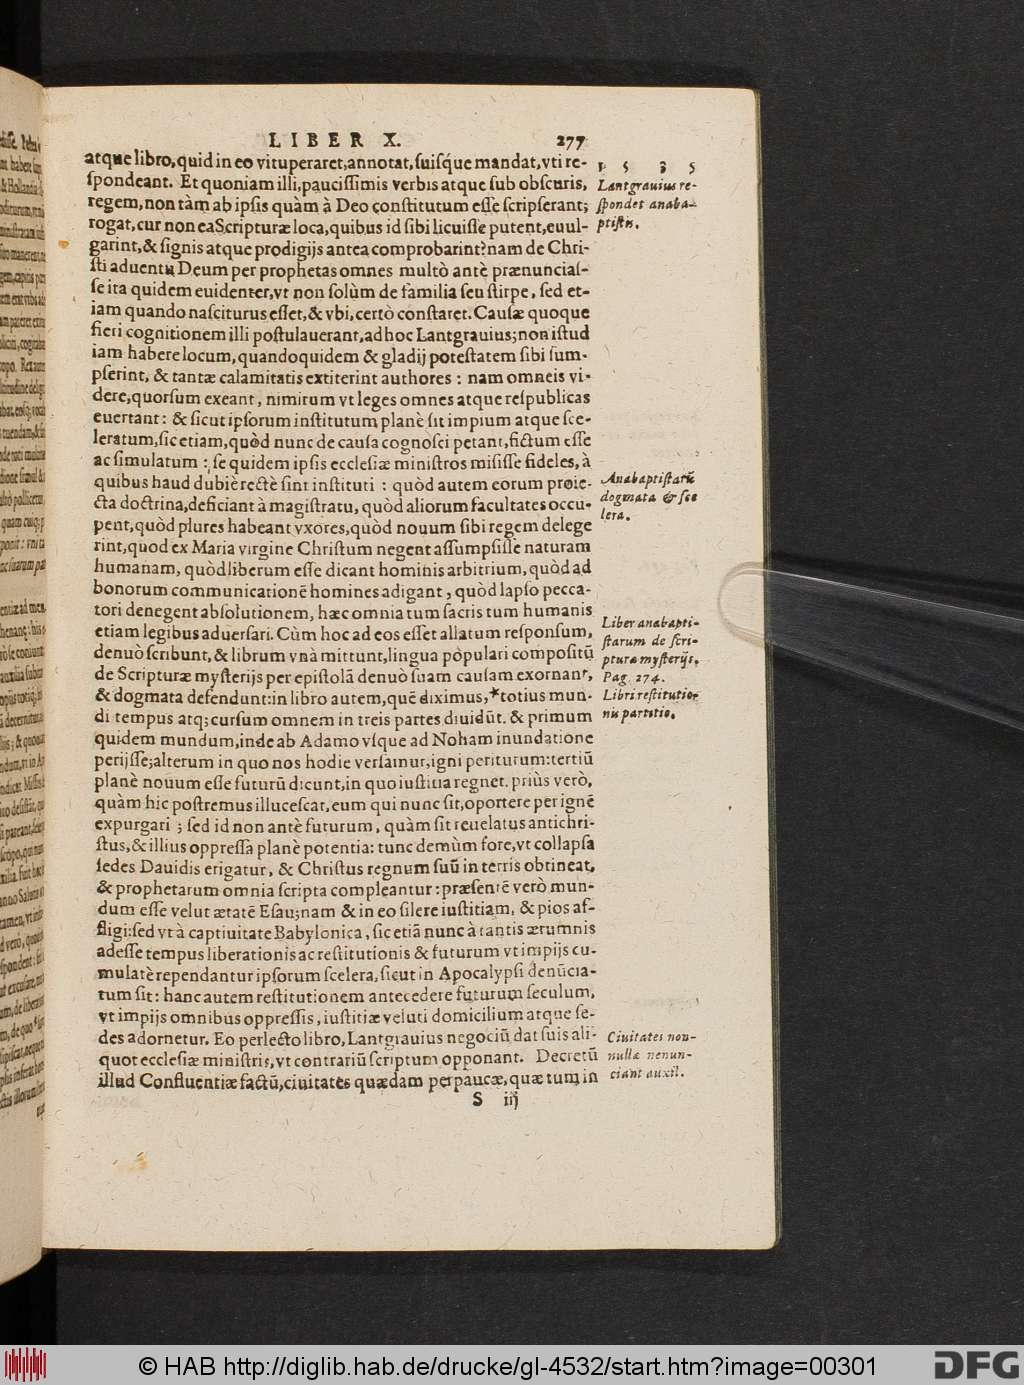 LIBER X. 277
atque libro, quid in eo vituperaret, annotat, suisq́ue mandat, vti re-
spondeant. Et quoniam illi, paucissimis verbis atque sub obscuris,
regem, non tàm ab ipsis quàm à Deo constitutum esse scripserant;
rogat, cur non ea Scripturæ loca, quibus id sibi licuisse putent, euul-
garint, & signis atque prodigijs antea comprobarint? nam de Chri-
sti aduentu Deum per prophetas omnes multò antè prænuncias-
se ita quidem euidenter, vt non solùm de familia seu stirpe, sed et-
iam quando nasciturus esset, & vbi, certò constaret. Causæ quoque
fieri cognitionem illi postulauerant, ad hoc Lantgrauius; non istud
iam habere locum, quandoquidem & gladij potestatem sibi sum-
pserint, & tantæ calamitatis extiterint authores : nam omneis vi-
dere, quorsum exeant, nimirum vt leges omnes atque respublicas
euertant : & sicut ipsorum institutum planè sit impium atque sce-
leratum, sic etiam, quòd nunc de causa cognosci petant, fictum esse
ac simulatum : se quidem ipsis ecclesiæ ministros misisse fideles, à
quibus haud dubiè rectè sint instituti : quòd autem eorum proie-
cta doctrina, deficiant à magistratu, quòd aliorum facultates occu-
pent, quòd plures habeant vxores, quòd nouum sibi regem delege
rint, quod ex Maria virgine Christum negent assumpsisse naturam
humanam, quòd liberum esse dicant hominis arbitrium, quòd ad
bonorum communicationē homines adigant, quòd lapso pecca-
tori denegent absolutionem, hæc omnia tum sacris tum humanis
etiam legibus aduersari. Cùm hoc ad eos esset allatum responsum,
denuò scribunt, & librum vnà mittunt, lingua pòpulari compositū
de Scripturæ mysterijs per epistolā denuò suam causam exornant,
& dogmata defendunt: in libro autem, quē diximus, *totius mun-
di tempus atq; cursum omnem in treis partes diuidūt. & primum
quidem mundum, inde ab Adamo vsque ad Noham inundatione
perijsse; alterum in quo nos hodie versamur, igni periturum: tertiū
planè nouum esse futurū dicunt, in quo iustitia regnet. priùs verò,
quàm hic postremus illucescat, eum qui nunc sit, oportere per ignē
expurgari ; sed id non antè futurum, quàm sit reuelatus antichri-
stus, & illius oppressa planè potentia: tunc demùm fore, vt collapsa
sedes Dauidis erigatur, & Christus regnum suū in terris obtineat,
& prophetarum omnia scripta compleantur: præsentē verò mun-
dum esse velut ætatē Esau; nam & in eo silere iustitiam, & pios af-
fligi: sed vt à captiuitate Babylonica, sic etiā nunc à tantis ærumnis
adesse tempus liberationis ac restitutionis & futurum vt impijs cu-
mulatè rependantur ipsorum scelera, sicut in Apocalypsi denūcia-
tum sit: hanc autem restitutionem antecedere futurum seculum,
vt impijs omnibus oppressis, iustitiæ veluti domicilium atque se-
des adornetur. Eo perlecto libro, Lantgrauius negociū dat suis ali-
quot ecclesiæ ministris, vt contrariū scriptum opponant. Decretū
illud Confluentiæ factū, ciuitates quædam perpaucæ, quæ tum in
S iij
1 5 3 5
Lantgrauius re-
spondet anaba-
ptistis.
Anabaptistarū
dogmata & sce
lera.
Liber anabapti-
starum de scri-
pturæ mysterijs.
Pag. 274.
Libri restitutio-
nis partitio.
Ciuitates non-
nullæ nenun-
ciant auxil.
© HAB http://diglib.hab.de/drucke/gl-4532/start.htm?image=00301
DFG